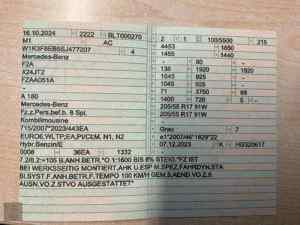 16.10.2024 2222 BLT000270
M1 AC
W1K3F8EB5SJ477207 4
Mercedes-Benz
F2A
X24JT2
FZAA051A
-
A 180
Mercedes-Benz
Fz.z.Pers.bef.b. 8 Spl.
Kombilimousine
715/2007*2023/443EA
EURO6,WLTP,EA,PI/CI/M, N1, N2
Hybr.Benzin/E
0008 36EA 1332
2 1 100/5500 215
4453 1650
1455 1440
- 80 -
136 1920 1920
1045 925
1045 925
71 3750
1400 725 5
205/55 R17 91W
205/55 R17 91W
-
Grau 7
07.12.2023 K
7.2/8.2:+105 B.ANH.BETR.*O.1:1600 BIS 8% STEIG.*FZ IST
BEI WERKSSEITIG MONTIERT.AHK U.ESP M.SPEZ.FAHRDYN.STA
BI.SYST.F.ANH.BETR.F.TEMPO 100 KM/H GEM.
AUSN.VO Z.STVO AUSGESTATTET*